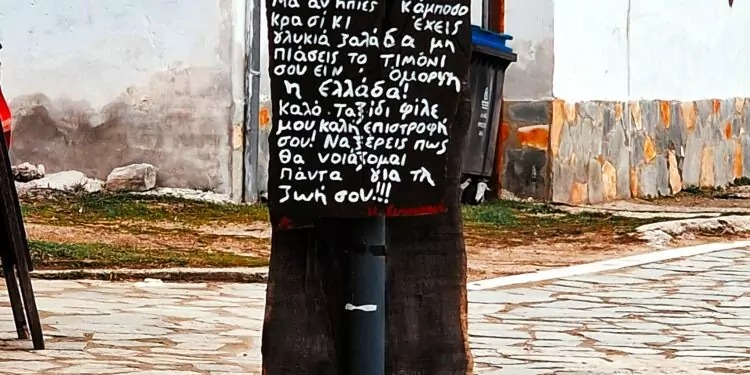 Μα αν ήπιες κάμποσο
κρασί κι έχεις
γλυκιά ζαλάδα μη
πιάσεις το τιμόνι
σου ειν' όμορφη
η Ελλάδα!
Καλό ταξίδι φίλε
μου καλή επιστροφή
σου! Να ξέρεις πως
θα νοιάζομαι
πάντα για τη
ζωή σου!!!